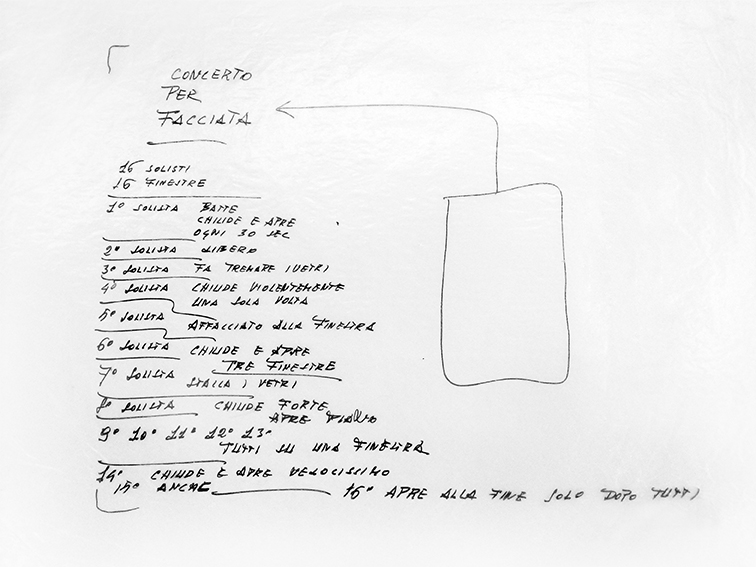 CONCERTO
PER
FACCIATA
16 SOLISTI
16 FINESTRE
1° SOLISTA BATTE
CHIUDE E APRE
OGNI 30 SEC
2° SOLISTA LIBERO
3° SOLISTA FA TREMARE I VETRI
4° SOLISTA CHIUDE VIOLENTEMENTE
UNA SOLA VOLTA
5° SOLISTA AFFACCIATO ALLA FINESTRA
6° SOLISTA CHIUDE E APRE
TRE FINESTRE
7° SOLISTA
STALLA I VETRI
8° SOLISTA CHIUDE FORTE
APRE PIANO
9° 10° 11° 12° 13°
TUTTI SU UNA FINESTRA
14° CHIUDE E APRE VELOCISSIMO
15° ANCHE 16° APRE ALLA FINE SOLO DOPO TUTTI